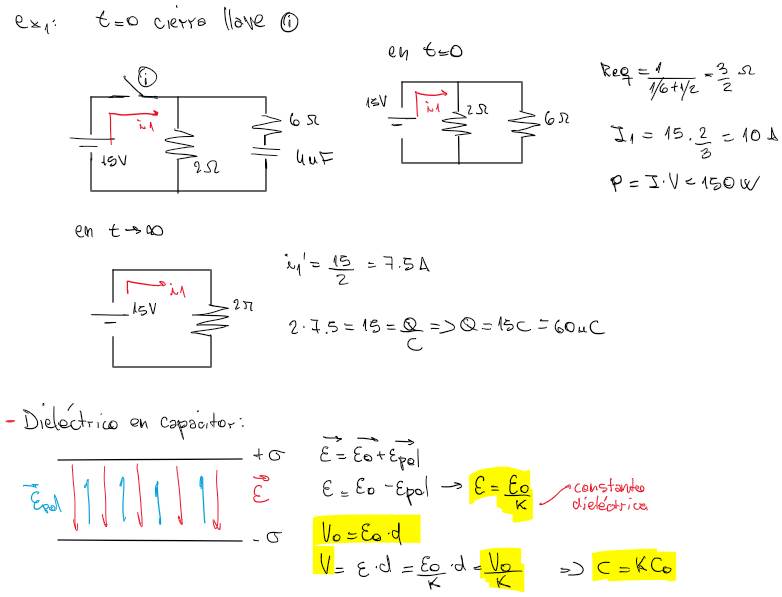 ex1: t=0 cierro llave ①
①
i1
15V
2Ω
6Ω
4uF
en t=0
15V
i1
2Ω
6Ω
Req = 1/(1/6+1/2) = 3/2 Ω
I1 = 15 · 2/3 = 10 A
P = I·V = 150 W
en t→∞
i1
15V
2Ω
i1' = 15/2 = 7.5A
2·7.5 = 15 = Q/C => Q = 15C = 60uC
- Dieléctrico en capacitor:
+σ
Epol
E
-σ
E = E0 + Epol
E = E0 - Epol → E = E0/K
constante
dieléctrica
V0 = E0·d
V = E·d = E0/K · d = V0/K => C = KC0